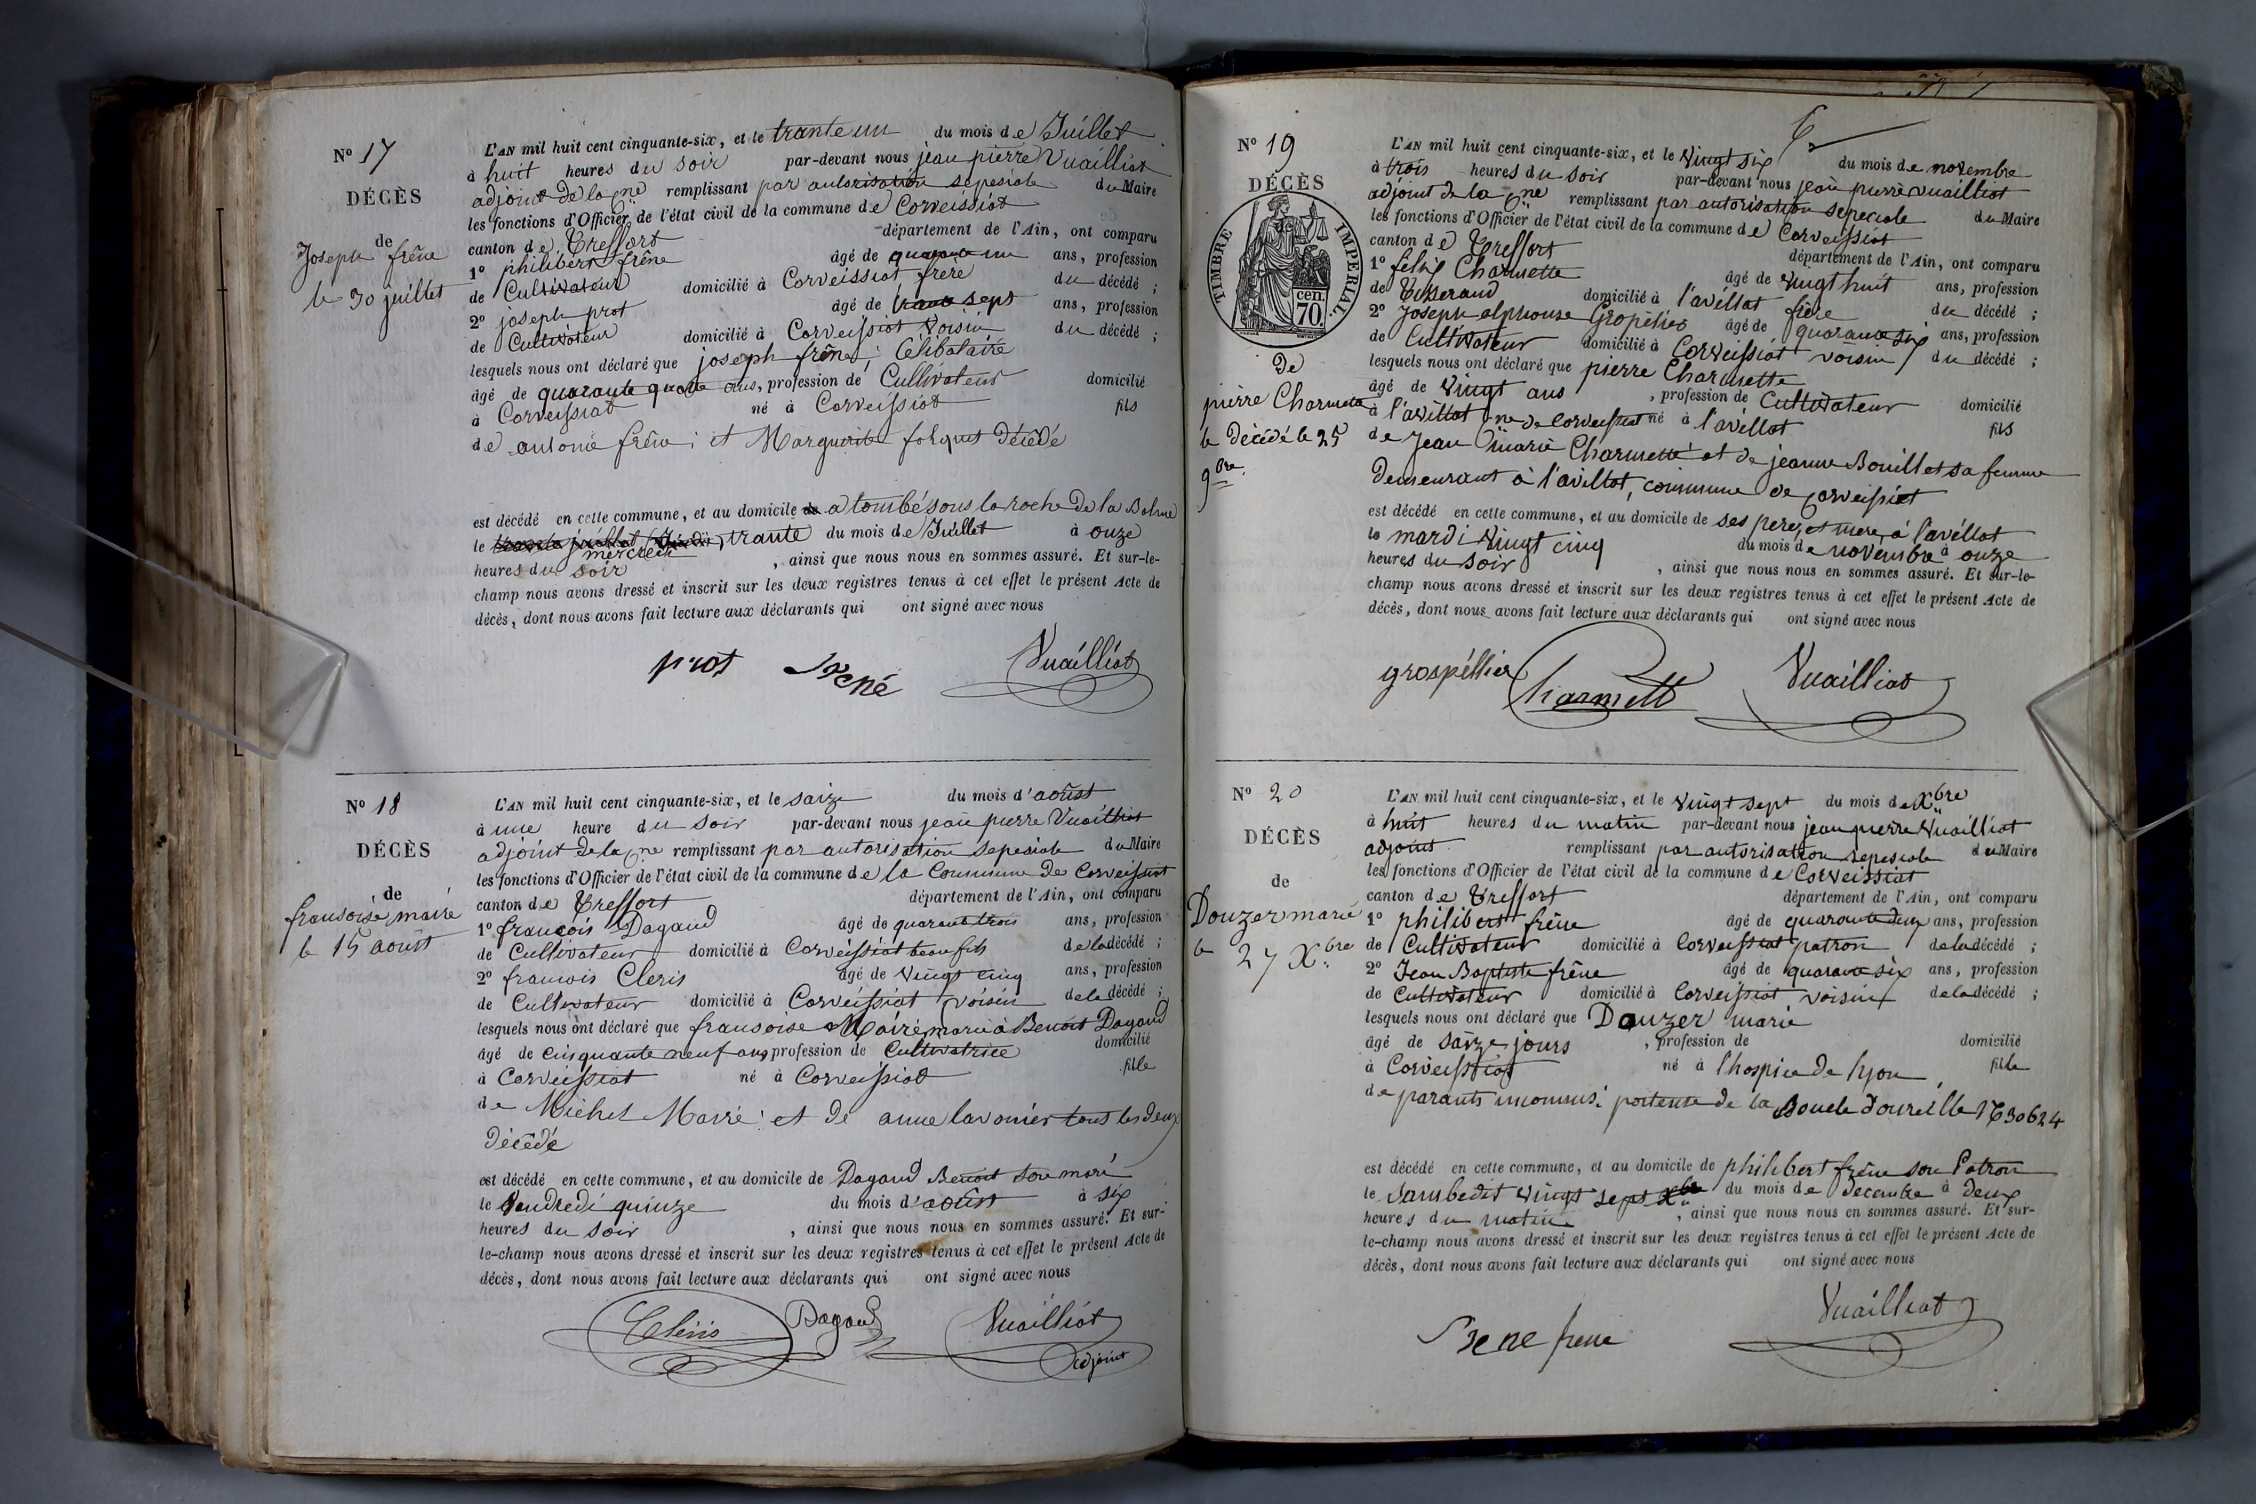 N° 17
DÉCÈS
de
Joseph frêne
le 30 juillet
L'AN mil huit cent cinquante-six, et le trante un du mois de Juillet
à huit heures du soir par-devant nous jean pierre Vuailliat
adjoint de la Cne remplissant par autorisation sepesiale du Maire
les fonctions d'Officier de l'état civil de la commune de Corveissiat
canton de Treffort département de l'Ain, ont comparu
1° philibert frêne âgé de quarante un ans, profession
de Cultivateur domicilié à Corveissiat frère du décédé ;
2° joseph prot âgé de trante sept ans, profession
de Cultivateur domicilié à Corveissiat Voisin du décédé ;
lesquels nous ont déclaré que joseph frêne, Célibataire
âgé de quarante quatre ans, profession de Cultivateur domicilié
à Corveissiat né à Corveissiat fils
de antoine frêne ; et Marguerite folquet Décédé
est décédé en cette commune, et au domicile de a tombé sous la roche De la Balme
le trante juillet trante du mois de Juillet à onze
mercredi
heures du soir , ainsi que nous nous en sommes assuré. Et sur-le-
champ nous avons dressé et inscrit sur les deux registres tenus à cet effet le présent Acte de
décès, dont nous avons fait lecture aux déclarants qui ont signé avec nous
prot frené Vuailliat
N° 18
DÉCÈS
de
fransoise mairé
le 15 août
L'AN mil huit cent cinquante-six, et le saize du mois d'août
à une heure du soir par-devant nous jean pierre Vuailliat
adjoint de la Cne remplissant par autorisation sepesiale du Maire
les fonctions d'Officier de l'état civil de la commune de la Commune de Corveissiat
canton de Treffort département de l'Ain, ont comparu
1° françois Dagaud âgé de quarante trois ans, profession
de Cultivateur domicilié à Corveissiat beau fils de la décédé ;
2° francois Cleris âgé de Vingt cinq ans, profession
de Cultivateur domicilié à Corveissiat voisin de la décédé ;
lesquels nous ont déclaré que fransoise Mairé marié à Benoit Dagaud
âgé de cinquante neuf ans profession de Cultivatrice domicilié
à Corveissiat né à Corveissiat fille
de Michel Marré et de anne lavonier tous les deux
Décédé
est décédé en cette commune, et au domicile de Dagaud Benoit son mari
le Vendredi quinze du mois d'août à six
heures du soir , ainsi que nous nous en sommes assuré. Et sur-
le-champ nous avons dressé et inscrit sur les deux registres tenus à cet effet le présent Acte de
décès, dont nous avons fait lecture aux déclarants qui ont signé avec nous
Cléris Dagaud Vuailliat
adjoint
N° 19
DÉCÈS
TIMBRE IMPERIAL.
cen.
70
De
pierre Charmette
le Décédé le 25
9bre
L'AN mil huit cent cinquante-six, et le Vingt six du mois de novembre
à trois heures du soir par-devant nous jean pierre vuailliat
adjoint de la Cne remplissant par autorisation sepeciale du Maire
les fonctions d'Officier de l'état civil de la commune de Corveissiat
canton de Treffort département de l'Ain, ont comparu
1° felix Charmette âgé de vingt huit ans, profession
de Tisserand domicilié à l'avéllat frère du décédé ;
2° Joseph alphonse Gropélier âgé de quarante six ans, profession
de Cultivateur domicilié à Corveissiat voisin du décédé ;
lesquels nous ont déclaré que pierre Charmette
âgé de Vingt ans , profession de Cultivateur domicilié
à l'avillat Cne de Corveissiat né à l'avéllat fils
de Jean marie Charmette et de jeanne Bouillet sa femme
Demeurant à l'avillat, commune de Corveissiat
est décédé en cette commune, et au domicile de ses pere, et mere, à l'avéllat
le mardi Vingt cinq du mois de novembre à onze
heures du soir , ainsi que nous nous en sommes assuré. Et sur-le-
champ nous avons dressé et inscrit sur les deux registres tenus à cet effet le présent Acte de
décès, dont nous avons fait lecture aux déclarants qui ont signé avec nous
grospéllier Charmett Vuailliat
N° 20
DÉCÈS
de
Douzer marie
le 27 Xbre
L'AN mil huit cent cinquante-six, et le Vingt sept du mois de Xbre
à huit heures du matin par-devant nous jean pierre Vuailliat
adjoint remplissant par autorisation sepesiale du Maire
les fonctions d'Officier de l'état civil de la commune de Corveissiat
canton de Treffort département de l'Ain, ont comparu
1° philibert frêne âgé de quarante deux ans, profession
de Cultivateur domicilié à Corveissiat patron de la décédé ;
2° Jean Baptiste frêne âgé de quarante six ans, profession
de Cultivateur domicilié à Corveissiat voisin de la décédé ;
lesquels nous ont déclaré que Douzer marie
âgé de saize jours , profession de domicilié
à Corveissiat né à l'hospice de lyon fille
de parants inconnus portense de la Boucle d'oureille N° 30624
est décédé en cette commune, et au domicile de philibert frêne son Patron
le sambedit vingt sept Xbre du mois de decembre à deux
heures du matin , ainsi que nous nous en sommes assuré. Et sur-
le-champ nous avons dressé et inscrit sur les deux registres tenus à cet effet le présent Acte de
décès, dont nous avons fait lecture aux déclarants qui ont signé avec nous
frene frene Vuailliat